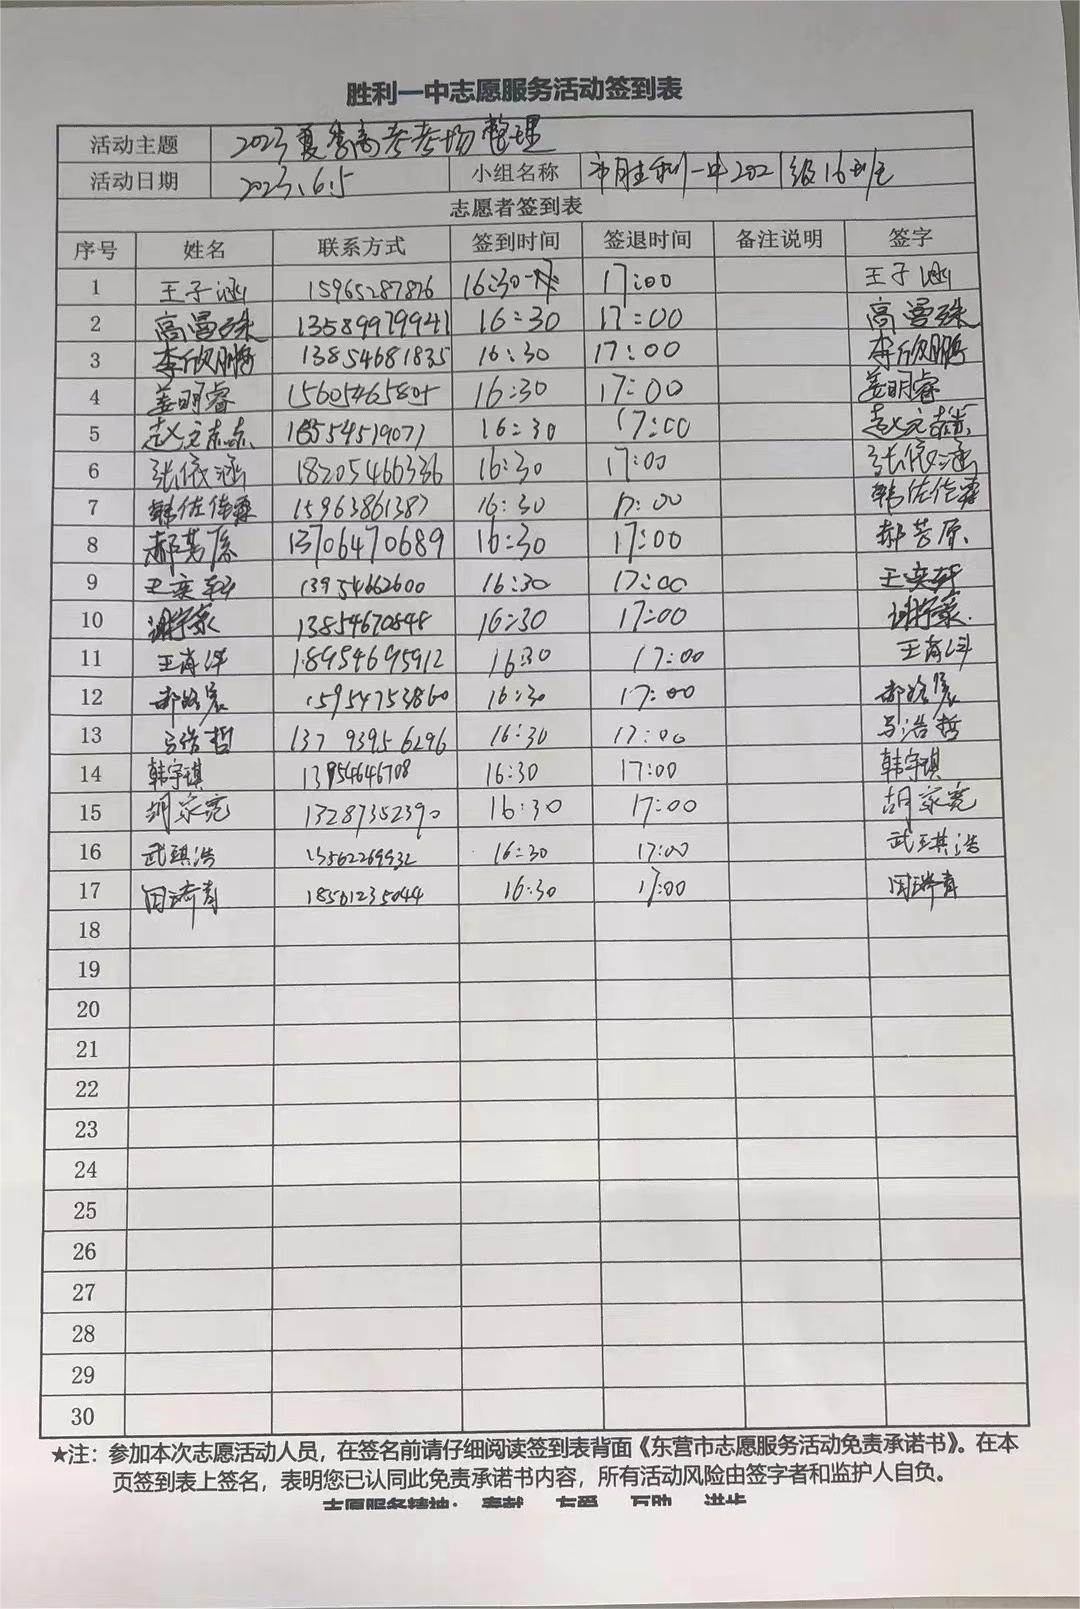 胜利一中志愿服务活动签到表
活动主题 2023夏季高考考场整理
活动日期 2023.6.5 小组名称 市胜利一中2021级16班
志愿者签到表
序号 姓名 联系方式 签到时间 签退时间 备注说明 签字
1 王子涵 15965287826 16:30 17:00 王子涵
2 高曼殊 13589979941 16:30 17:00 高曼殊
3 李欣鹏 13854681835 16:30 17:00 李欣鹏
4 姜明睿 15605465805 16:30 17:00 姜明睿
5 赵元 18554519071 16:30 17:00 赵元
6 张依涵 18205466336 16:30 17:00 张依涵
7 韩佐佳霖 15963861387 16:30 17:00 韩佐佳霖
8 郝芳原 13706470689 16:30 17:00 郝芳原
9 王奕轩 13954662600 16:30 17:00 王奕轩
10 谢宇豪 13854670848 16:30 17:00 谢宇豪
11 王肖洋 18954695912 16:30 17:00 王肖洋
12 15954753860 16:30 17:00
13 马浩哲 13793956296 16:30 17:00 马浩哲
14 韩宇琪 13954646708 16:30 17:00 韩宇琪
15 胡家宽 13287352390 16:30 17:00 胡家宽
16 武琪浩 13562269932 16:30 17:00 武琪浩
17 18561235044 16:30 17:00
18
19
20
21
22
23
24
25
26
27
28
29
30
★注：参加本次志愿活动人员，在签名前请仔细阅读签到表背面《东营市志愿服务活动免责承诺书》。在本
页签到表上签名，表明您已认同此免责承诺书内容，所有活动风险由签字者和监护人自负。
志愿服务精神： 奉献 友爱 互助 进步